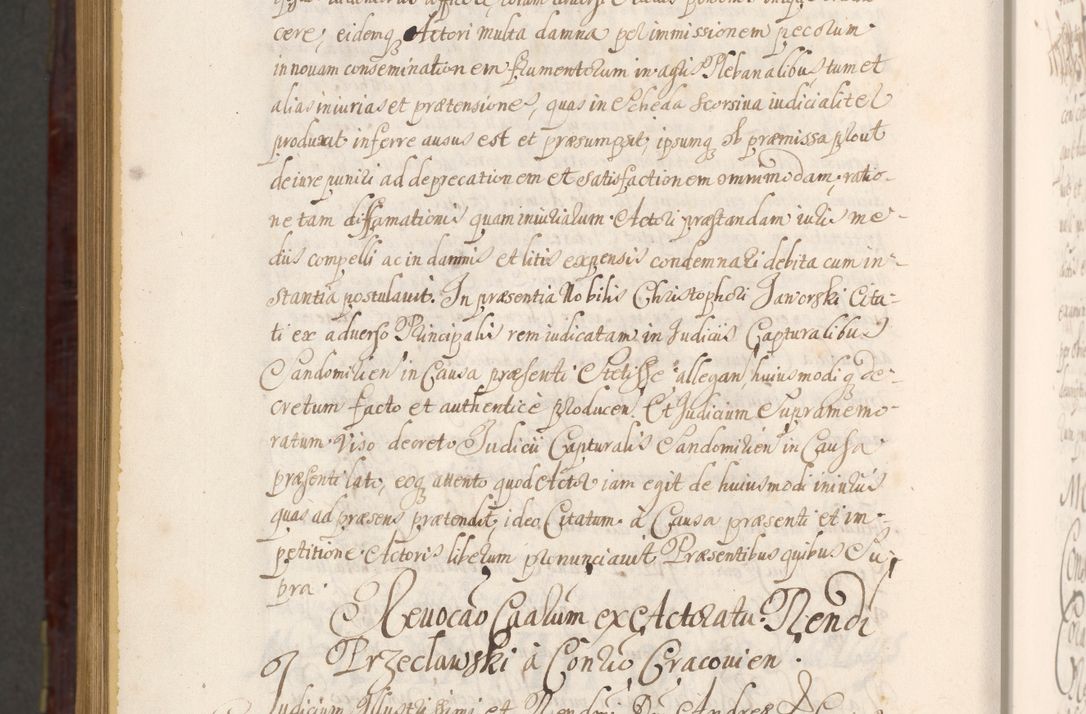 cere, eidemq Actori multa damna per immissionem pecorum
in novam conseminationem frumentorum in agris Plebanalibus tum et
alias iniurias et prætensiones, quas in scheda scorsiva iudicialiter
produxit inferre ausus est et præsumpsit, ipsumq ob præmissa prout
de iure puniri ad deprecationem et satisfactionem omnimodam, ratio-
ne tam diffamationis quam iniuriarum Actori præstandam iuris me-
diis compelli ac in damnis et litis expensis condemnari debita cum in-
stantia postulavit. In præsentia Nobilis Christophori Jaworski Cita-
ti ex adverso Principalis rem iudicatam in Judiciis Capturalibus
Sandomirien in Causa præsenti stetisse allegan huiusmodi q de-
cretum facto et authenticè producen. Et Judicium Supramemo-
ratum viso decreto Judicii Capturalis Sandomirien in Causa
præsenti lato, eoq attento quod Actor iam egit de huiusmodi iniuriis
quas ad præsens prætendit, ideo Citatum à Causa præsenti et im-
petitione Actoris liberum pronunciavit. Præsentibus quibus Su-
pra.
Revocao Caarum ex Actoratu Rendi
Przecławski à Consrio Cracovien.
Judicium Illustrissimi et Rendmi Dni Andreæ